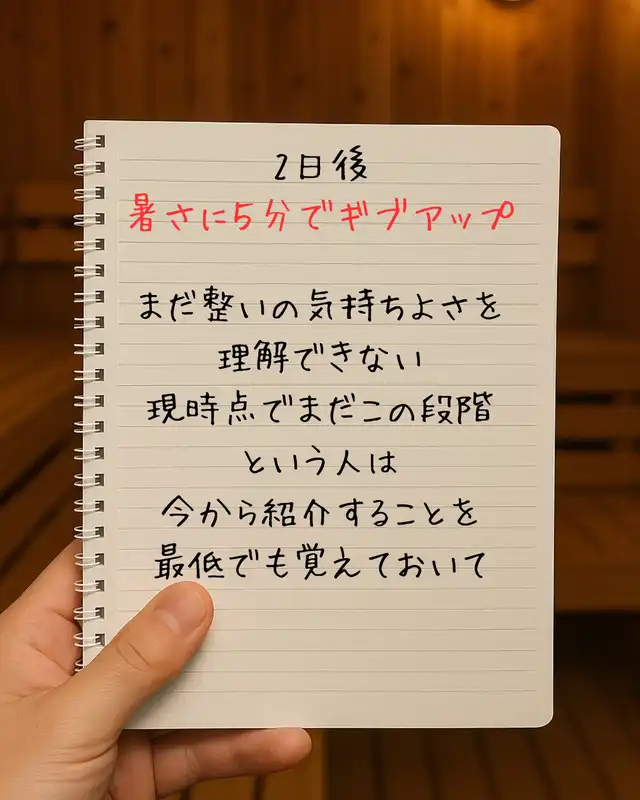 2日後
暑さに5分でギブアップ
まだ整いの気持ちよさを
理解できない
現時点でまだこの段階
という人は
今から紹介することを
最低でも覚えておいて